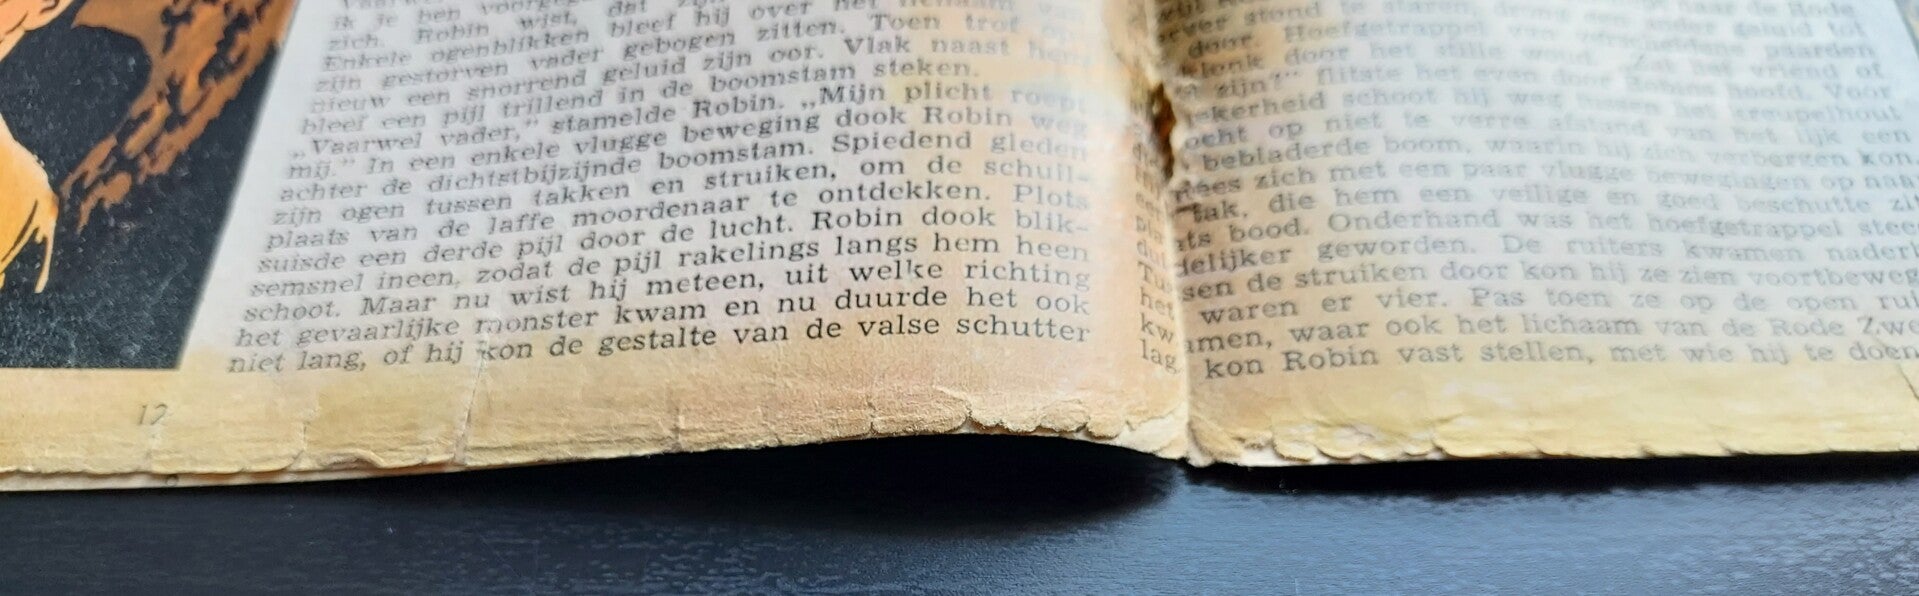 ik je ben
zich. Robin wist, dat zijn
Enkele ogenblikken bleef hij over het lichaam van
zijn gestorven vader gebogen zitten. Toen trof op
nieuw een snorrend geluid zijn oor. Vlak naast hem
bleef een pijl trillend in de boomstam steken.
„Vaarwel vader,” stamelde Robin. „Mijn plicht roept
mij.” In een enkele vlugge beweging dook Robin weg
achter de dichtstbijzijnde boomstam. Spiedend gleden
zijn ogen tussen takken en struiken, om de schuil-
plaats van de laffe moordenaar te ontdekken. Plots
suisde een derde pijl door de lucht. Robin dook blik-
semsnel ineen, zodat de pijl rakelings langs hem heen
schoot. Maar nu wist hij meteen, uit welke richting
het gevaarlijke monster kwam en nu duurde het ook
niet lang, of hij kon de gestalte van de valse schutter
12
stond te staren, drong een ander geluid tot
door. Hoefgetrappel van verscheidene paarden
klonk door het stille woud. „Zal het vriend of
zijn?” flitste het even door Robins hoofd. Voor
zekerheid schoot hij weg tussen het kreupelhout
op niet te verre afstand van het lijk een
bebladerde boom, waarin hij zich verbergen kon.
zich met een paar vlugge bewegingen op naar
tak, die hem een veilige en goed beschutte zit
bood. Onderhand was het hoefgetrappel steeds
geworden. De ruiters kwamen naderbij
de struiken door kon hij ze zien voortbeweg
het waren er vier. Pas toen ze op de open
waar ook het lichaam van de Rode Zwe
lag, kon Robin vast stellen, met wie hij te doen